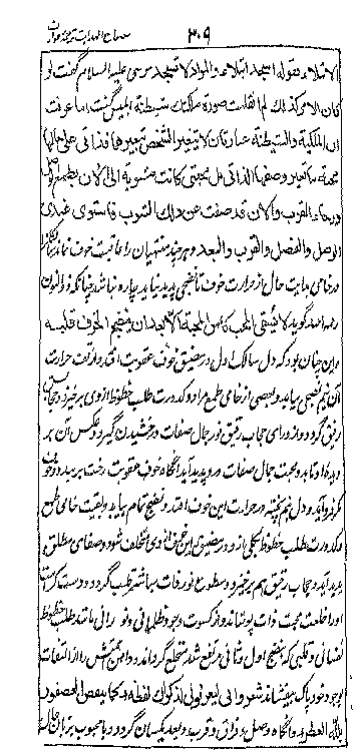 مصباح الهدایت ترجمه عوارف
۳۰۹
الابتلاء بقوله اسجد ابتلاء والمراد لا تسجد موسی علیه السلام گفت لو
کان الامر كذلك لم انقلبت صورة ملكك شیطنة ابلیس گفت اما عرفت
ان الملكية والشيطنة عبارتان لا یتغیر الشخص بتغیرهما فذاتی علی حالها
محبة ما تغیر وصفها الذاتی بل محبتی کانت مشوبة الی الان
ورجاء القرب والان قد صفت عن ذلك الشوب فاستوی عندی
الوصل والفصل والقرب والبعد و هر چند منتهیان را عاقبت خوف نماند
در خامی بدایت حال از حرارت خوف تا نضجی پدید نیاید چاره نباشد چنانکه ذوالنون
رحمه الله گوید لا یسقی المحب کاس المحبة الا بعد ان ینضج الخوف قلبه
و این چنان بود که دل سالک اول در مضیق خوف عقوبت افتد و از تف حرارت
آن نیم نضجی بیابد و بعضی از خامی طمع مراد و کدورت طلب حظوظ از وی برخیزد و حجاب
رقیق گردد و از ورای حجاب رقیق نور جمال صفات درخشیدن گیرد و عکس آن بر
دیده او تابد و محبت جمال صفات درو پدید آید آنگاه خوف عقوبت رخت بربندد و خوف
مکر فرو آید و دل نیم پخته در حرارت این خوف افتد و نضج تمام بیابد و بقیت خامی طمع
و کدورت طلب حظوظ بکلی ازو در مضیق این خوف از وی متخلف شود و صفای مطلق
پدید آید و حجاب رقیق هم برخیزد و سطوع نور ذات مباشر قلب گردد و دوست
او را خلعت محبت ذات پوشاند و از کسوت وجود ظلمانی و نورانی
نفسانی و قلبی که بنضج اول و ثانی مرتفع شد منخلع گرداند و دامن همتش را از التفات
وجود خود پاک بیفشاند
بلله القطر و آنگاه وصل و فراق و قرب و بعد یکسان گردد و با محبوب بزبان حال